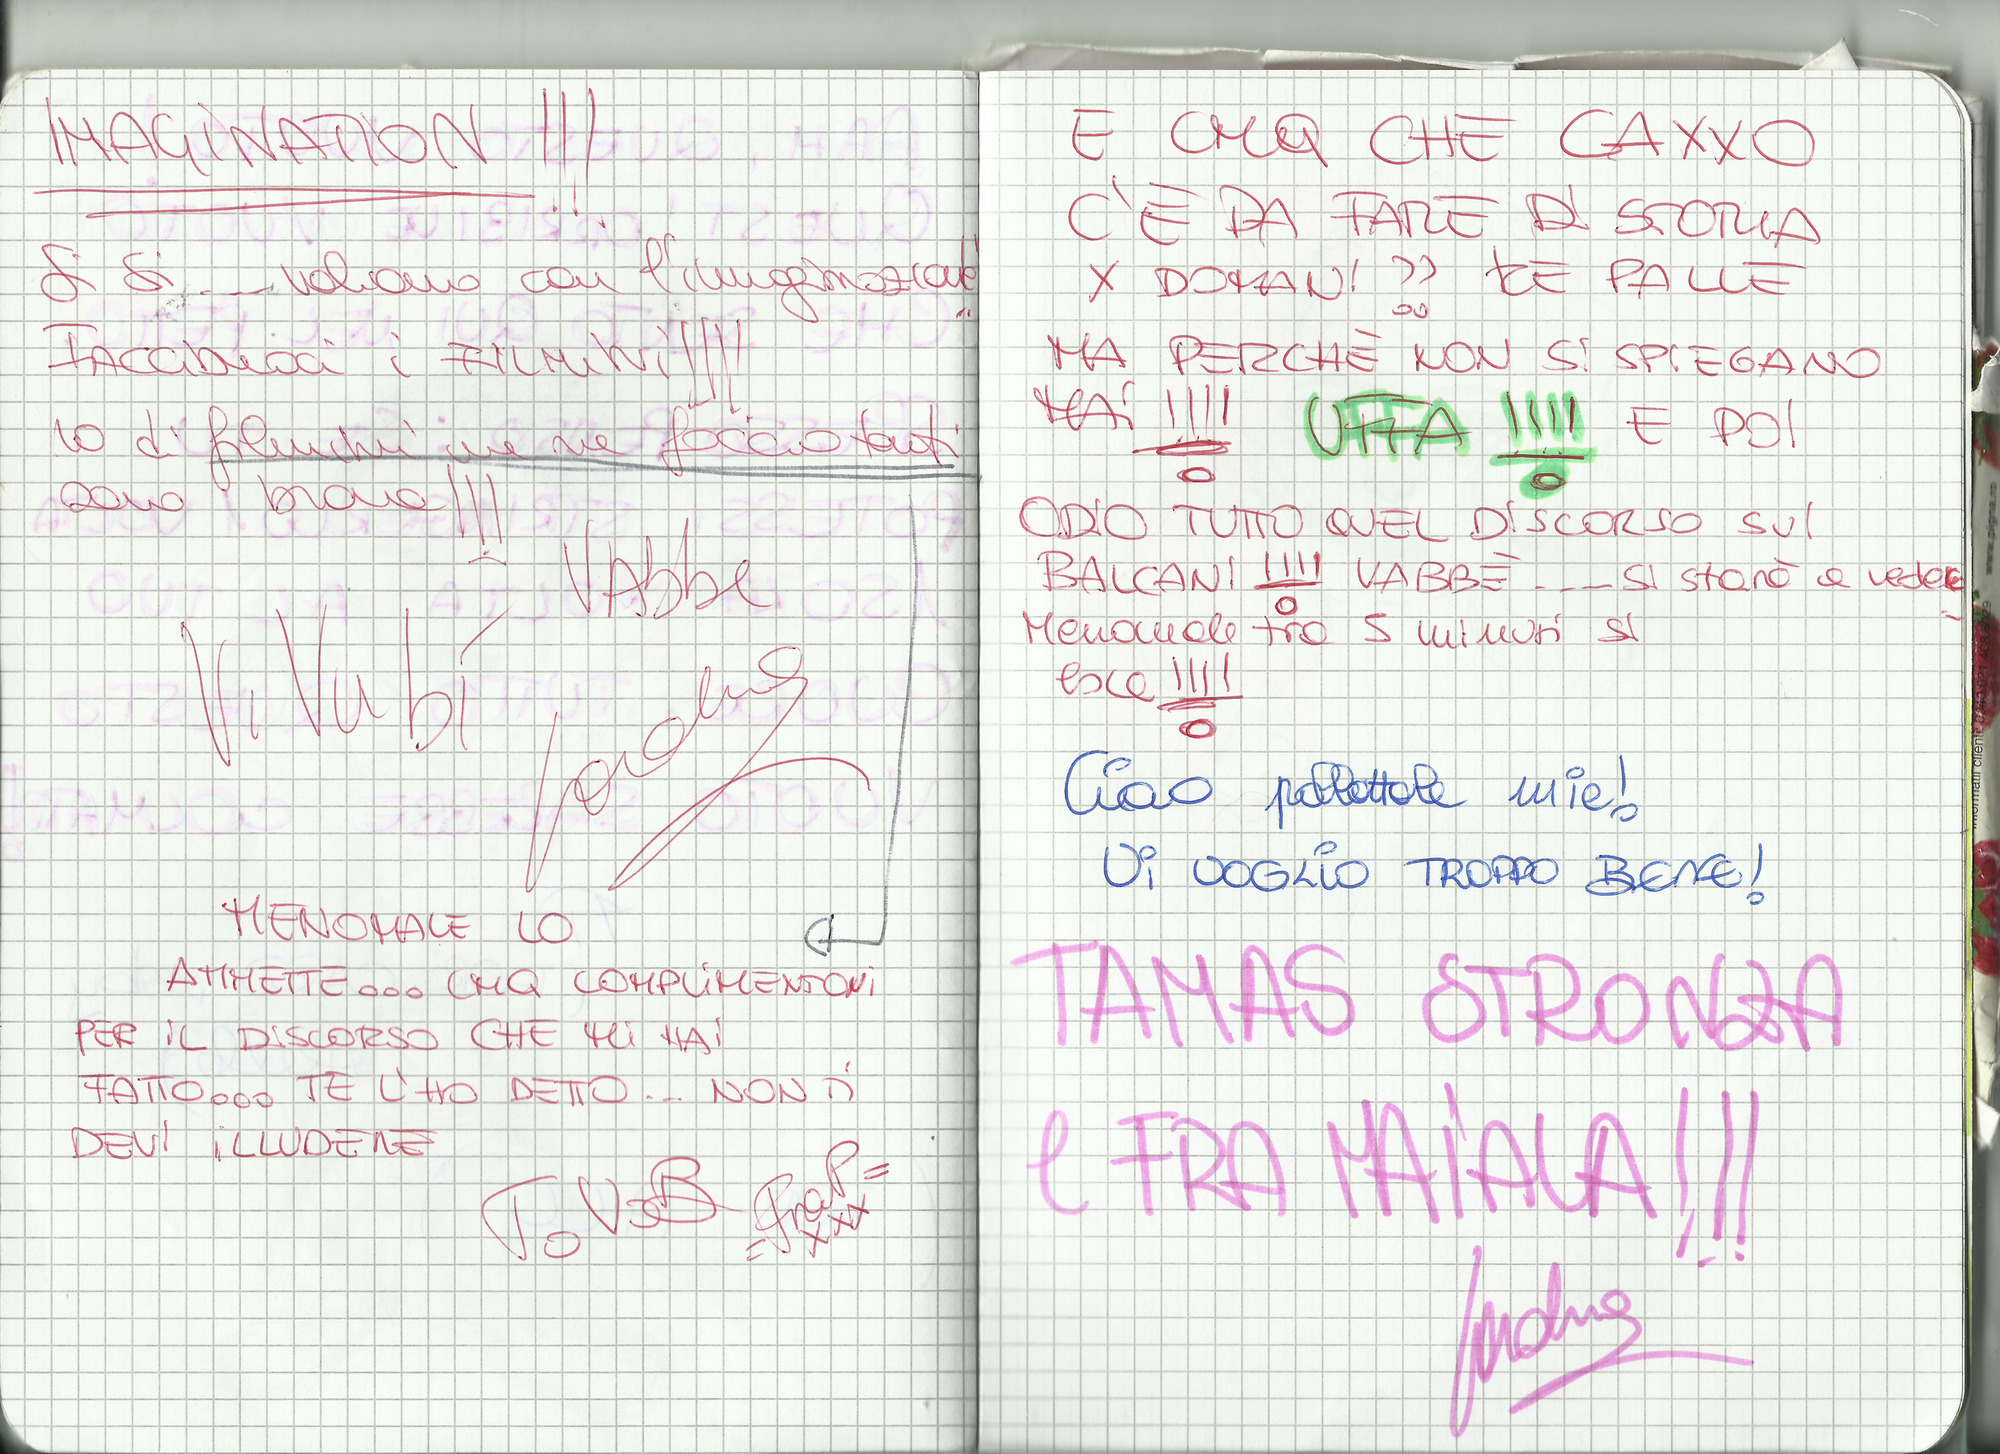 IMAGINATION !!!
Si Si ... voliamo con l'immaginazione
Facciamoci i FILMINI!!!!
io di filmini me ne faccio tanti
sono brava!!!
VABBE
Vi Vu bi
MENOMALE LO
AMMETTE... CMQ COMPLIMENTONI
PER IL DISCORSO CHE MI HAI
FATTO... TE L'HO DETTO... NON TI
DEVI ILLUDERE
T.V.B =FraP=
xxx
E CMQ CHE CAXXO
C'È DA FARE DI STORIA
X DOMANI?? CE PALLE
MA PERCHÈ NON SI SPIEGANO
MAI !!!! UFFA !!!! E POI
ODIO TUTTO QUEL DISCORSO SUI
BALCANI !!!! VABBÈ .... si starà a vedere
Menomale tra 5 minuti si
esce !!!!
Ciao pallottole mie!
Vi VOGLIO TROPPO BENE!
TAMAS STRONZA
e FRA MAIALA!!!